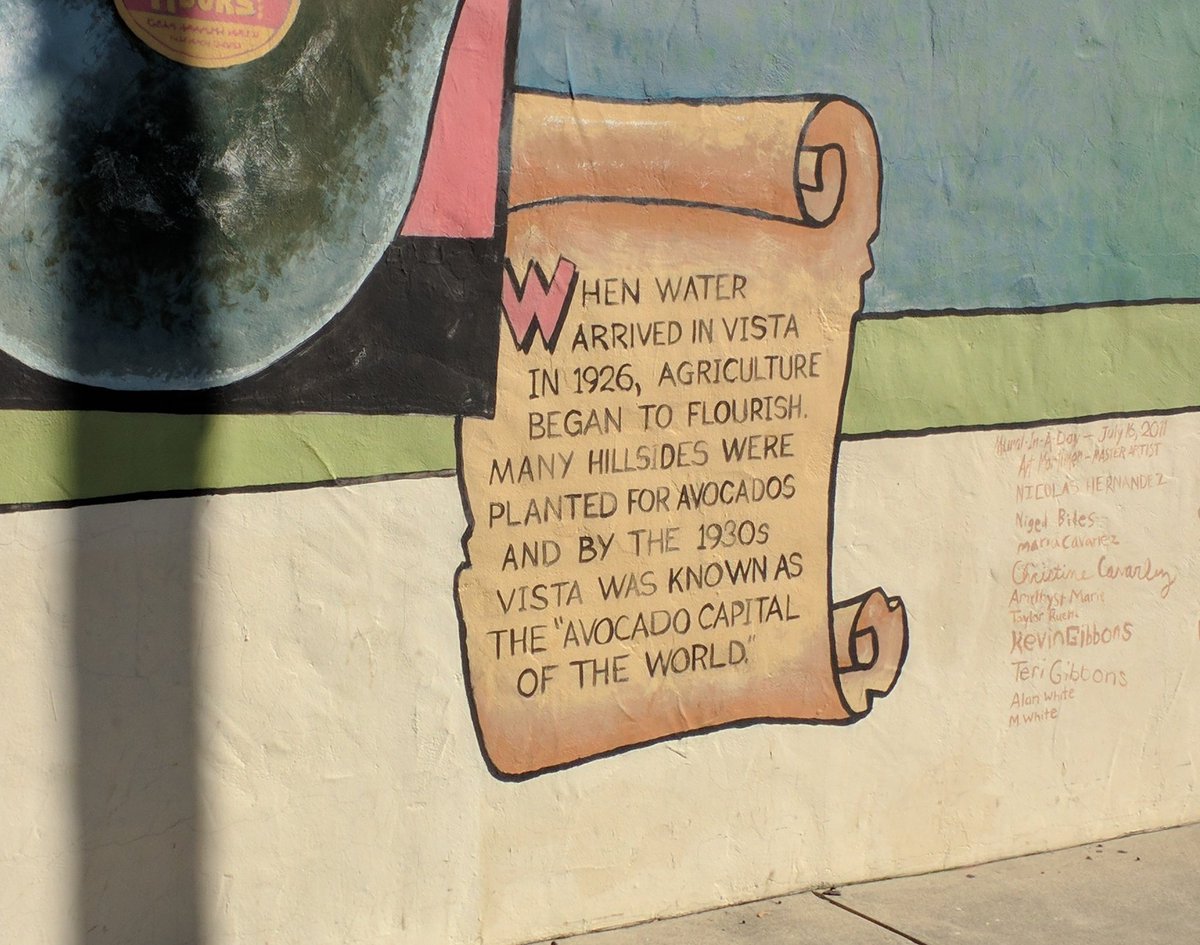 WHEN WATER
ARRIVED IN VISTA
IN 1926, AGRICULTURE
BEGAN TO FLOURISH.
MANY HILLSIDES WERE
PLANTED FOR AVOCADOS
AND BY THE 1930s
VISTA WAS KNOWN AS
THE "AVOCADO CAPITAL
OF THE WORLD."
Mural-In-A-Day - July 16, 2011
Art Mortimer - MASTER ARTIST
NICOLAS HERNANDEZ
Nigel Biles
Maria Cavarlez
Christine Cavarlez
Amethyst Marie
Taylor
Kevin Gibbons
Teri Gibbons
Alan White
M White